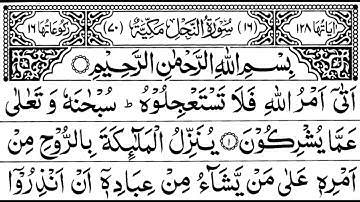 اٰیَاتُهَا ١٢٨ (١٦) سُوْرَةُ النَّحْلِ مَكِّيَّةٌ (٧٠) رُكُوْعَاتُهَا ١٦
بِسْمِ اللّٰهِ الرَّحْمٰنِ الرَّحِيْمِ
اَتٰۤى اَمْرُ اللّٰهِ فَلَا تَسْتَعْجِلُوْهُ ؕ سُبْحٰنَهٗ وَ تَعٰلٰى
عَمَّا يُشْرِكُوْنَ ۝١ يُنَزِّلُ الْمَلٰٓئِكَةَ بِالرُّوْحِ مِنْ
اَمْرِهٖ عَلٰى مَنْ يَّشَآءُ مِنْ عِبَادِهٖۤ اَنْ اَنْذِرُوْۤا